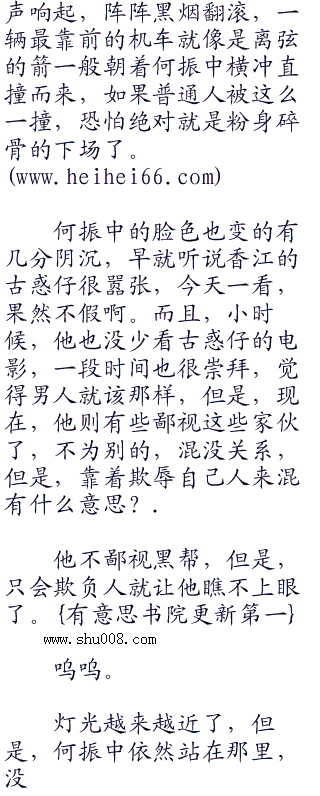 声响起，阵阵黑烟翻滚，一
辆最靠前的机车就像是离弦
的箭一般朝着何振中横冲直
撞而来，如果普通人被这么
一撞，恐怕绝对就是粉身碎
骨的下场了。
(www.heihei66.com)
何振中的脸色也变的有
几分阴沉，早就听说香江的
古惑仔很嚣张，今天一看，
果然不假啊。而且，小时
候，他也没少看古惑仔的电
影，一段时间也很崇拜，觉
得男人就该那样，但是，现
在，他则有些鄙视这些家伙
了，不为别的，混没关系，
但是，靠着欺辱自己人来混
有什么意思？.
他不鄙视黑帮，但是，
只会欺负人就让他瞧不上眼
了。{有意思书院更新第一}
www.shu008.com
呜呜。
灯光越来越近了，但
是，何振中依然站在那里，
没